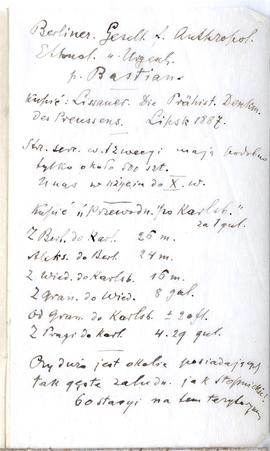 Berliner. Gesell. f. Anthropol.
Ethnol. u. Urgesch.
p. Bastian.
Kupić: Lissauer. Die Prähist. Denkm.
des Preussens. Lipsk 1887.
Str. serr. w Szwecyi mają podobno
tylko około 500 szt.
U nas w użyciu do X. w.
Kupić „Przewodn. po Karlsb."
za 1 gul.
Z Berl. do Karl. 26 m.
Aleks. do Berl. 24 m.
Z Wied. do Karlsb. 16 m.
Z Gran. do Wied. 8 gul.
od Gran. do Karlsb. ± 20 fl.
Z Pragi do Karl. 4.29 gul.
Czy dużo jest okolic posiadających
tak gęste zaludn. jak Stopnickie?
60 stacyi na tem terytoryum